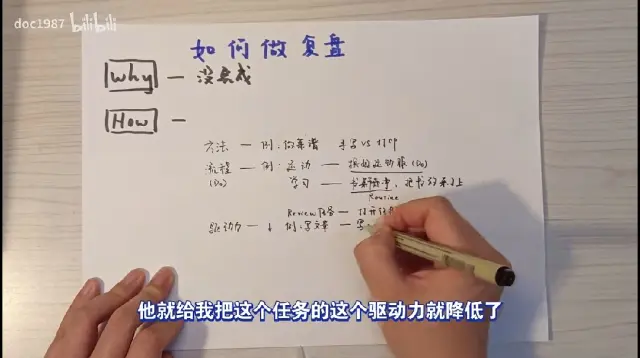 doc1987 bilibili
如何做复盘
Why — 没完成
How —
方法 — 例:做菜谱 手写 vs 打印
流程 — 例:运动 — 换好运动服 (Do)
(Do) 学习 — 书桌清空,把书放桌子上
Routine
Review任务 — 打开
驱动力 — ↓ 例:写文章 — 写
他就给我把这个任务的这个驱动力就降低了